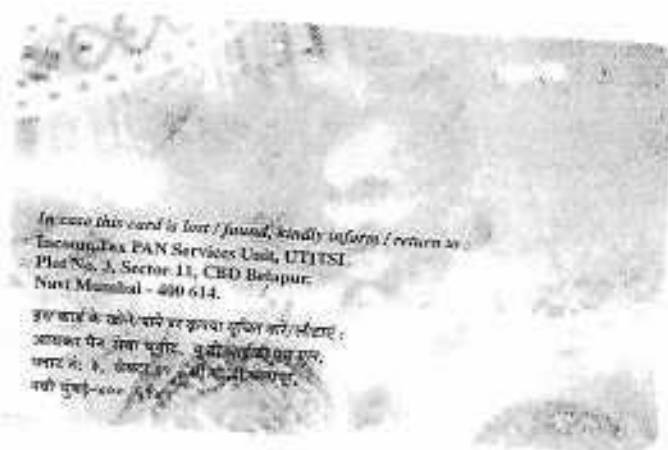 In case this card is lost / found, kindly inform / return to :
Income Tax PAN Services Unit, UTITSL
Plot No. 3, Sector 11, CBD Belapur,
Navi Mumbai - 400 614.
इस कार्ड के खोने/पाने पर कृपया सूचित करें/लौटाएं :
आयकर पैन सेवा यूनीट,
प्लाट नं: ३, सेक्टर
नवी मुंबई-४००